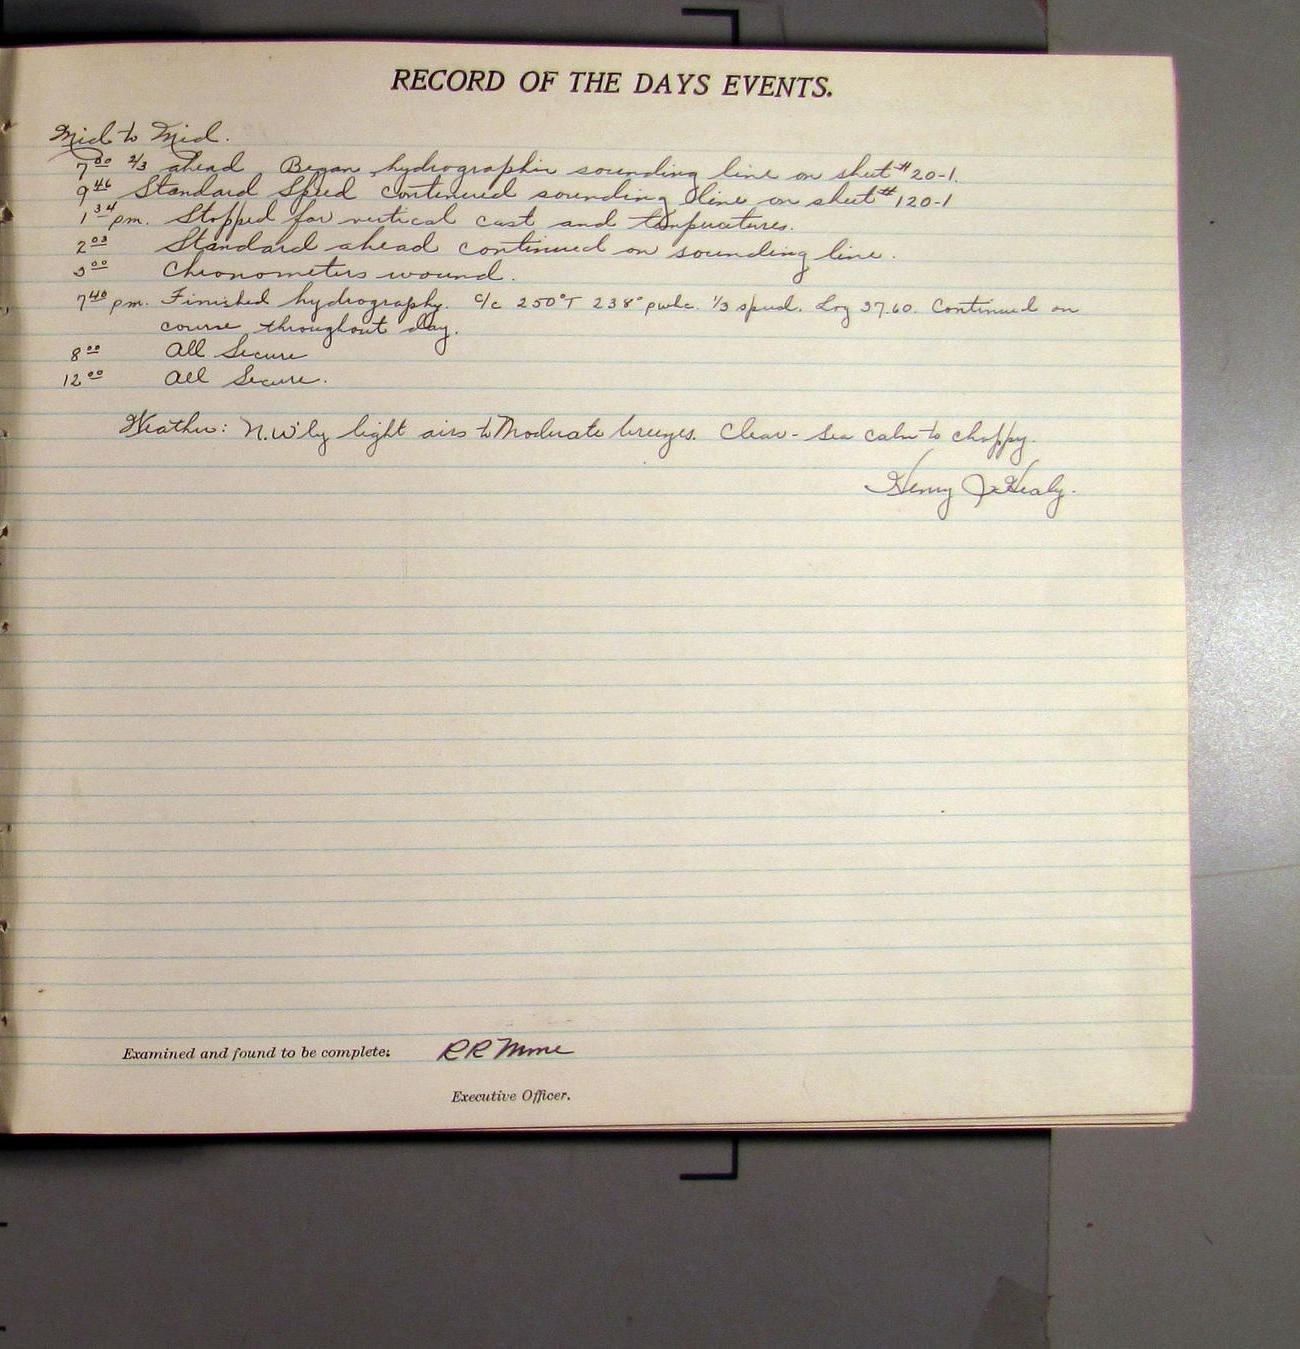 RECORD OF THE DAYS EVENTS.
Mid to Mid.
7 00 2/3 ahead Began hydrographic sounding line on sheet #20-1.
9 46 Standard Speed continued sounding line on sheet #120-1
1 34 pm. Stopped for vertical cast and temperatures.
2 03 Standard ahead continued on sounding line.
5 00 Chronometers wound.
7 40 pm. Finished hydrography. c/c 250°T 238° pwhc. 1/3 speed. Log 37.60. Continued on
course throughout day.
8 00 All Secure
12 00 All Secure.
Weather: N.W'ly light airs to Moderate breezes. Clear - Sea calm to choppy.
Henry J. Healy.
Examined and found to be complete:
Executive Officer.